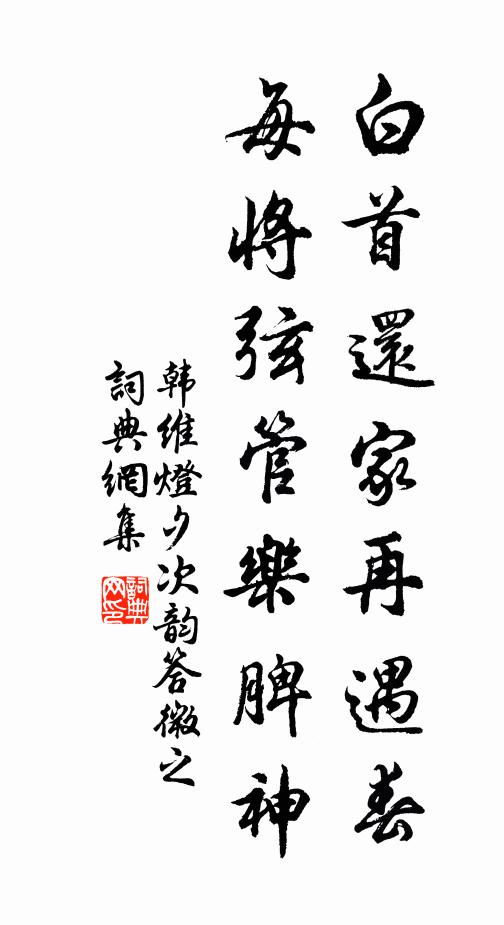 白首還家再遇春
每將弦管樂脾神
韩維燈夕次韵答微之
詞典網集
詞典網印